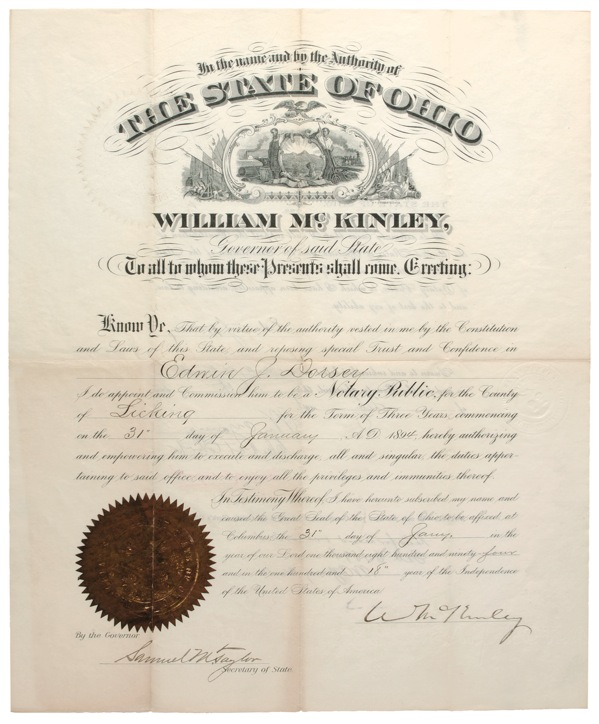 In the name and by the Authority of
THE STATE OF OHIO
WILLIAM McKINLEY,
Governor of said State
To all to whom these Presents shall come, Greeting:
Know Ye, That by virtue of the authority vested in me by the Constitution
and Laws of this State and reposing special Trust and Confidence in
Edwin J. Dorsey
I do appoint and Commission him to be a Notary Public, for the County
of Licking for the Term of Three Years, commencing
on the 31st day of January A.D. 1894, hereby authorizing
and empowering him to execute and discharge, all and singular, the duties apper-
taining to said office and to enjoy all the privileges and immunities thereof.
In Testimony Whereof, I have hereunto subscribed my name and
caused the Great Seal of the State of Ohio to be affixed at
Columbus, the 31st day of Jany. in the
year of our Lord one thousand eight hundred and ninety-four
and in the one hundred and 18th year of the Independence
of the United States of America
W McKinley
By the Governor
Samuel M Taylor
Secretary of State.